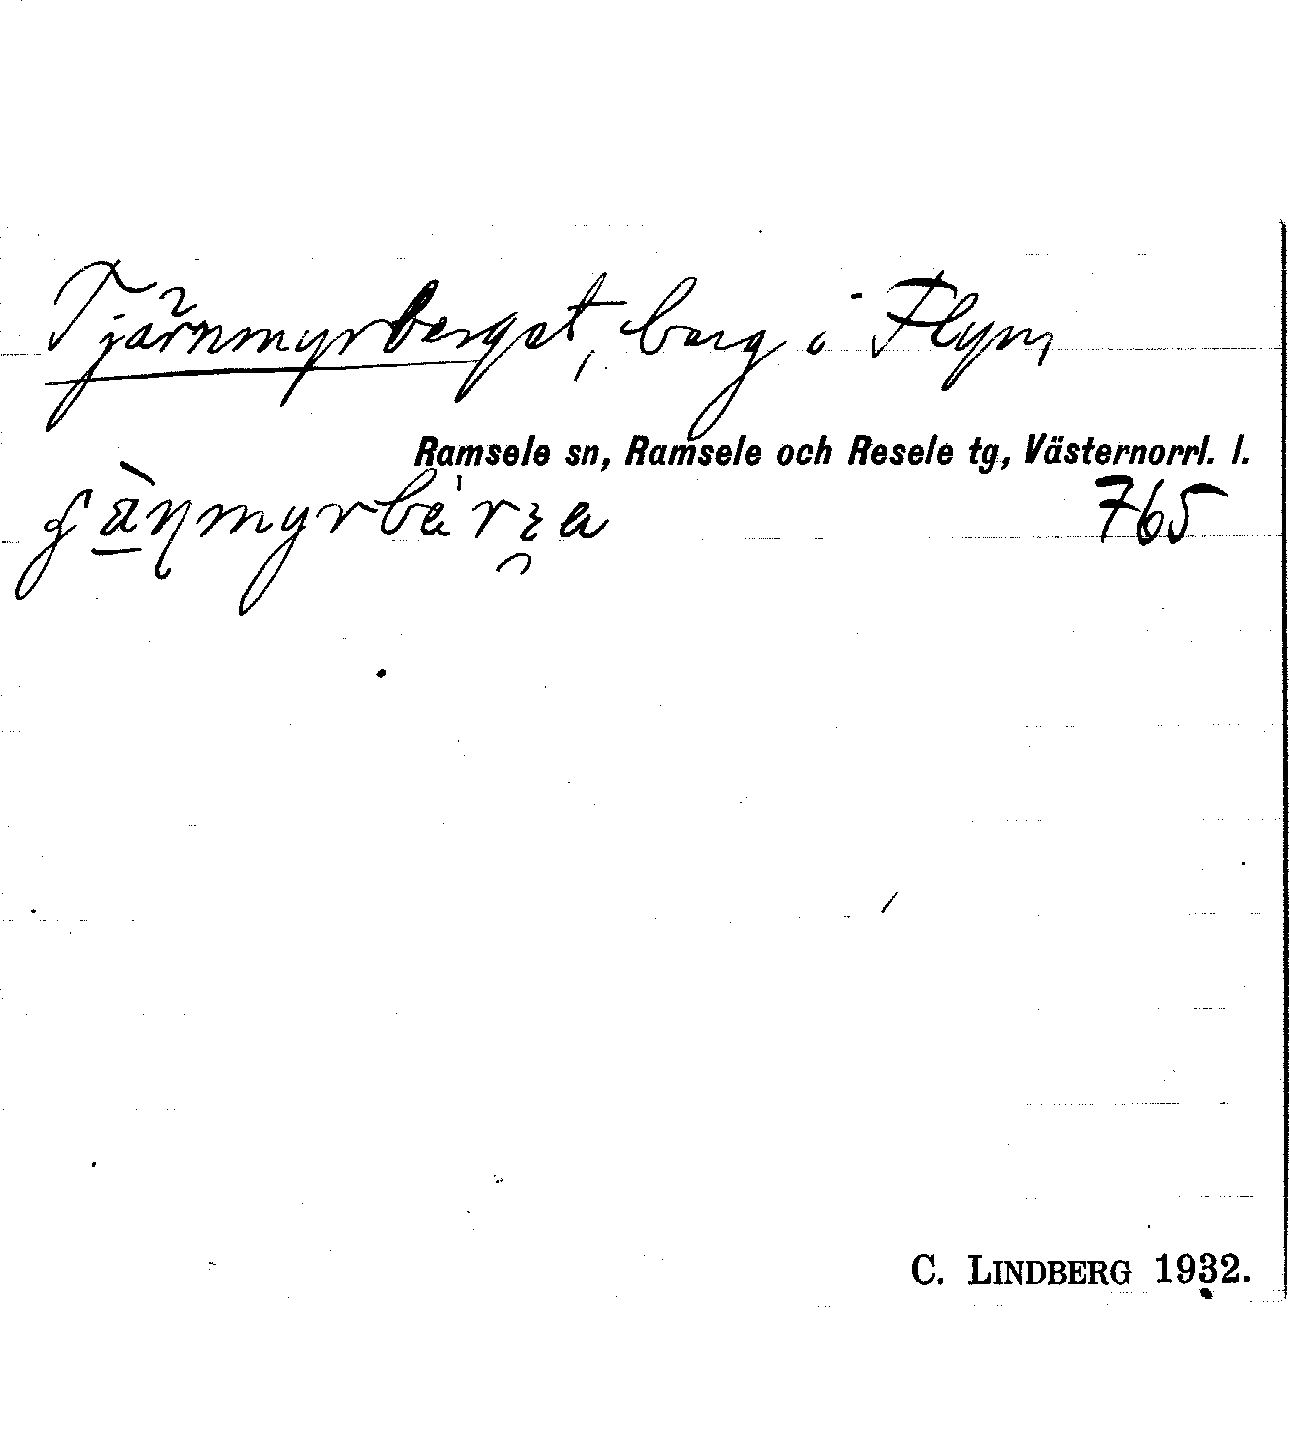 Tjärnmyrberget, berg i Flyn,
Ramsele sn, Ramsele och Resele tg, Västernorrl. l.
765
C. LINDBERG 1932.